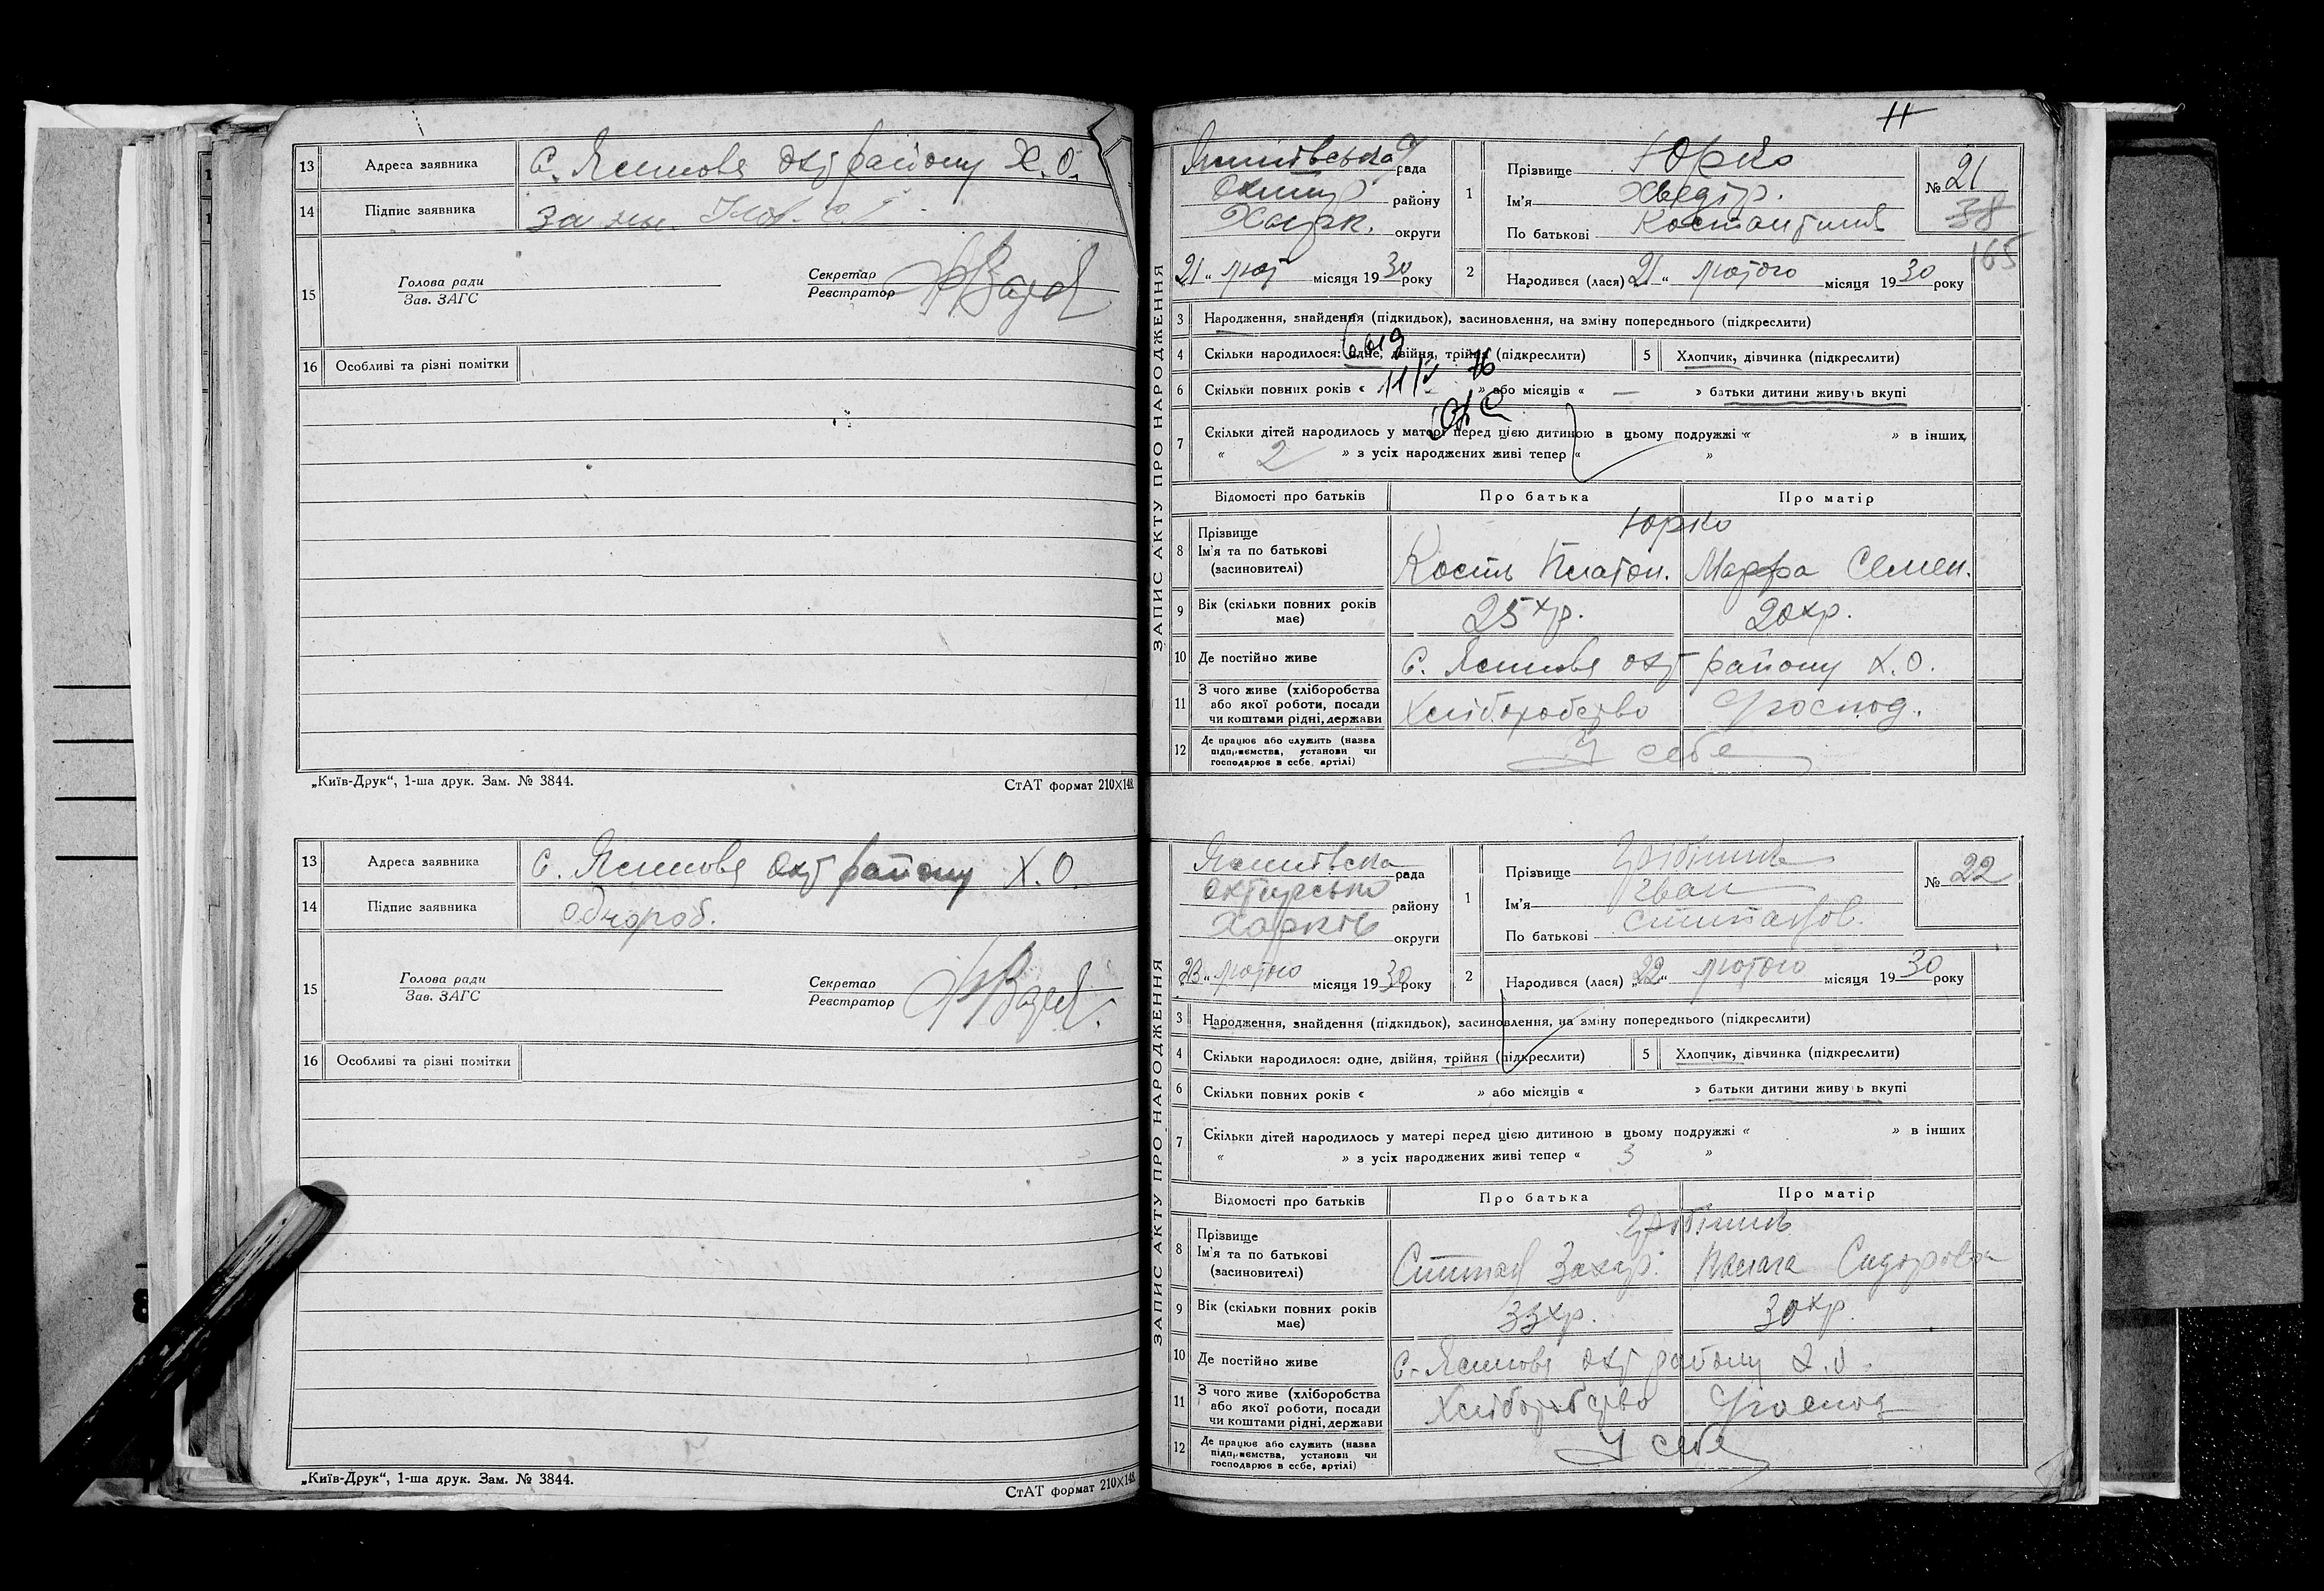 13 Адреса заявника С. Ясенове Охт району Х.О.
14 Підпис заявника За
15 Голова ради
Зав. ЗАГС
Секретар
Реєстратор
16 Особливі та різні помітки
„Київ-Друк“, 1-ша друк. Зам. № 3844.
СтАТ формат 210×148
13 Адреса заявника С. Ясенове Охт району Х.О.
14 Підпис заявника
15 Голова ради
Зав. ЗАГС
Секретар
Реєстратор
16 Особливі та різні помітки
„Київ-Друк“, 1-ша друк. Зам. № 3844.
СтАТ формат 210×148
11
ЗАПИС АКТУ ПРО НАРОДЖЕННЯ
рада
району
Харк. округи
21 “ лют місяця 1930 року
1 Прізвище Юрко
Ім'я Хведір.
По батькові Костантинів
№ 21
38
165
2 Народився (лася) 21 “ лютого місяця 1930 року
3 Народження, знайдення (підкидьок), засиновлення, на зміну попереднього (підкреслити)
4 Скільки народилося: одне, двійня, трійня (підкреслити)
5 Хлопчик, дівчинка (підкреслити)
6 Скільки повних років « » або місяців « — » батьки дитини живуть вкупі
11/V 76
7 Скільки дітей народилось у матері перед цією дитиною в цьому подружжі « » в інших
« 2 » з усіх народжених живі тепер « »
Відомості про батьків Про батька Про матір
8 Прізвище
Ім'я та по батькові
(засиновителі)
Юрко
Кость Платон. Марфа Семен.
9 Вік (скільки повних років має) 25 хр. 20 хр.
10 Де постійно живе С. Ясенове Охт району Х.О.
11 З чого живе (хліборобства
або якої роботи, посади
чи коштами рідні, держави
Хліборобство У господ.
12 Де працює або служить (назва
підприємства, установи чи
господарює в себе, артілі)
У себе
ЗАПИС АКТУ ПРО НАРОДЖЕННЯ
рада
району
Харків округи
23 “ лютого місяця 1930 року
1 Прізвище
Ім'я Іван
По батькові
№ 22
2 Народився (лася) „22“ лютого місяця 1930 року
3 Народження, знайдення (підкидьок), засиновлення, на зміну попереднього (підкреслити)
4 Скільки народилося: одне, двійня, трійня (підкреслити)
5 Хлопчик, дівчинка (підкреслити)
6 Скільки повних років « » або місяців « » батьки дитини живуть вкупі
7 Скільки дітей народилось у матері перед цією дитиною в цьому подружжі « » в інших
« » з усіх народжених живі тепер « 3 »
Відомості про батьків Про батька Про матір
8 Прізвище
Ім'я та по батькові
(засиновителі)
Захар. Сидорівна
9 Вік (скільки повних років має) 33 хр. 30 хр.
10 Де постійно живе С. Ясенове Охт району Х.О.
11 З чого живе (хліборобства
або якої роботи, посади
чи коштами рідні, держави
Хліборобство У господ
12 Де працює або служить (назва
підприємства, установи чи
господарює в себе, артілі)
У себе